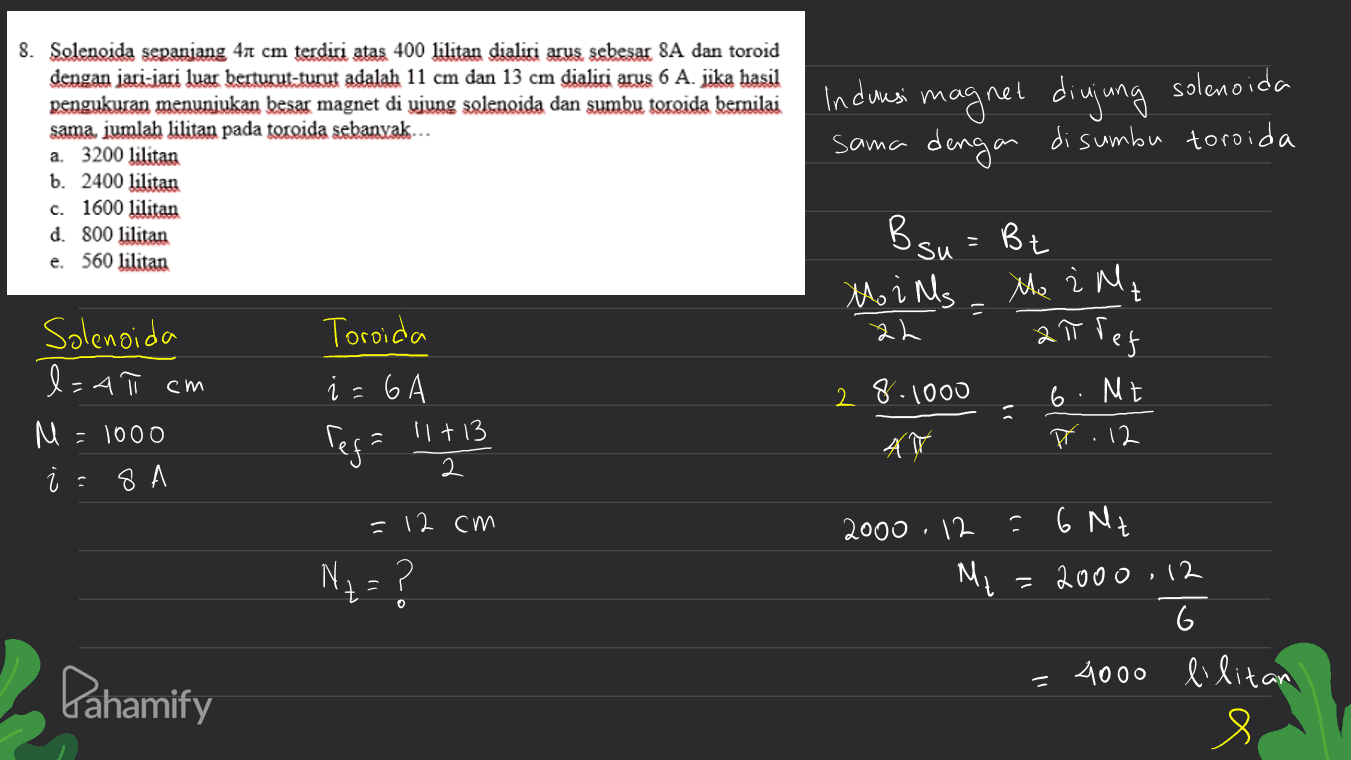 8. Solenoida sepanjang 4π cm terdiri atas 400 lilitan dialiri arus sebesar 8A dan toroid
dengan jari-jari luar berturut-turut adalah 11 cm dan 13 cm dialiri arus 6 A. jika hasil
pengukuran menunjukan besar magnet di ujung solenoida dan sumbu toroida bernilai
sama, jumlah lilitan pada toroida sebanyak…
a. 3200 lilitan
b. 2400 lilitan
c. 1600 lilitan
d. 800 lilitan
e. 560 lilitan
Solenoida
l = 4π cm
N = 1000
i = 8 A
Toroida
i = 6 A
ref = 11 + 13
2
= 12 cm
Nt = ?
Induksi magnet diujung solenoida
sama dengan disumbu toroida
Bsu = Bt
μ₀ i Ns = μ₀ i Nt
2L 2π ref
2 8.1000 = 6. Nt
4π π . 12
2000 . 12 = 6 Nt
Nt = 2000 . 12
6
= 4000 lilitan
Pahamify